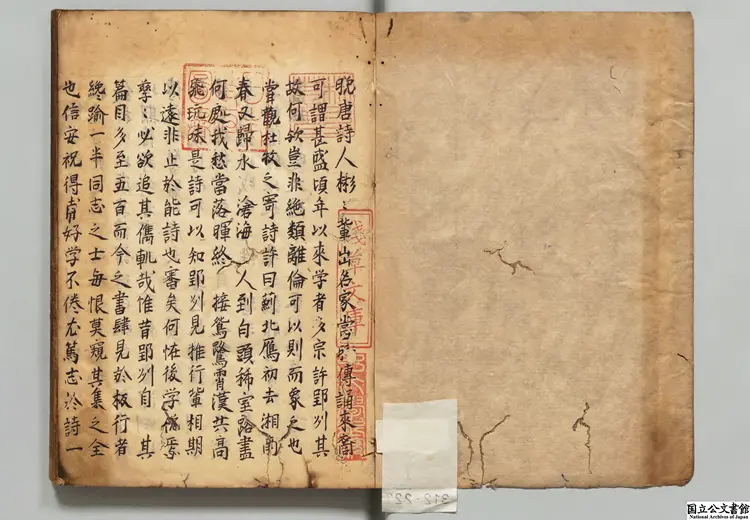 晩唐詩人彬〻輩出各家当時傳誦来裔
可謂甚盛頃年以来学者多宗許郢州其
故何欤豈非絶類離倫可以則而象之也
嘗觀杜牧之寄詩許曰薊北鴈初去湘南
春又歸水 滄海 人到白頭稀 室路盡
何處我愁當落暉終 接鴛鷺霄漢共高
飛玩味是詩可以知郢州見推行輩相期
以遠非止於能詩也審矣何恠後学 焉
孳〻必欲追其儁軌哉惟昔郢州自 其
篇目多至五百而今之書肆見於板行者
終踰一半同志之士每恨莫窺其集之全
也信安祝得甫好学不倦尤篤志於詩一
淺草文庫
312-22
国立公文書館
National Archives of Japan